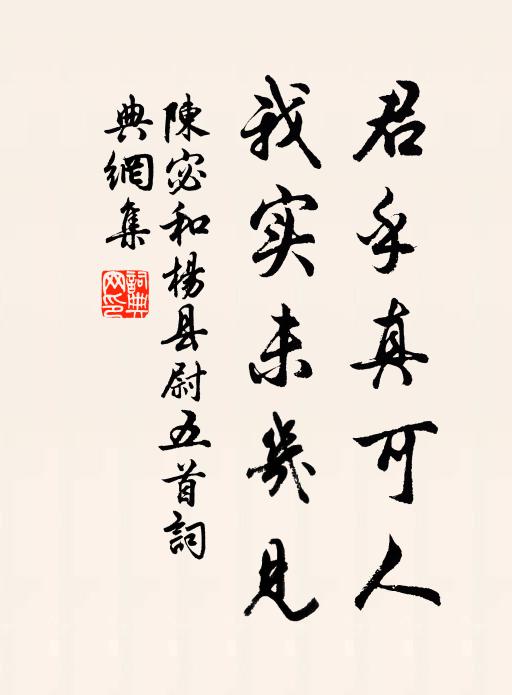 君乎真可人
我实未几见
陳宓和楊县尉五首詞
典網集
詞典网印